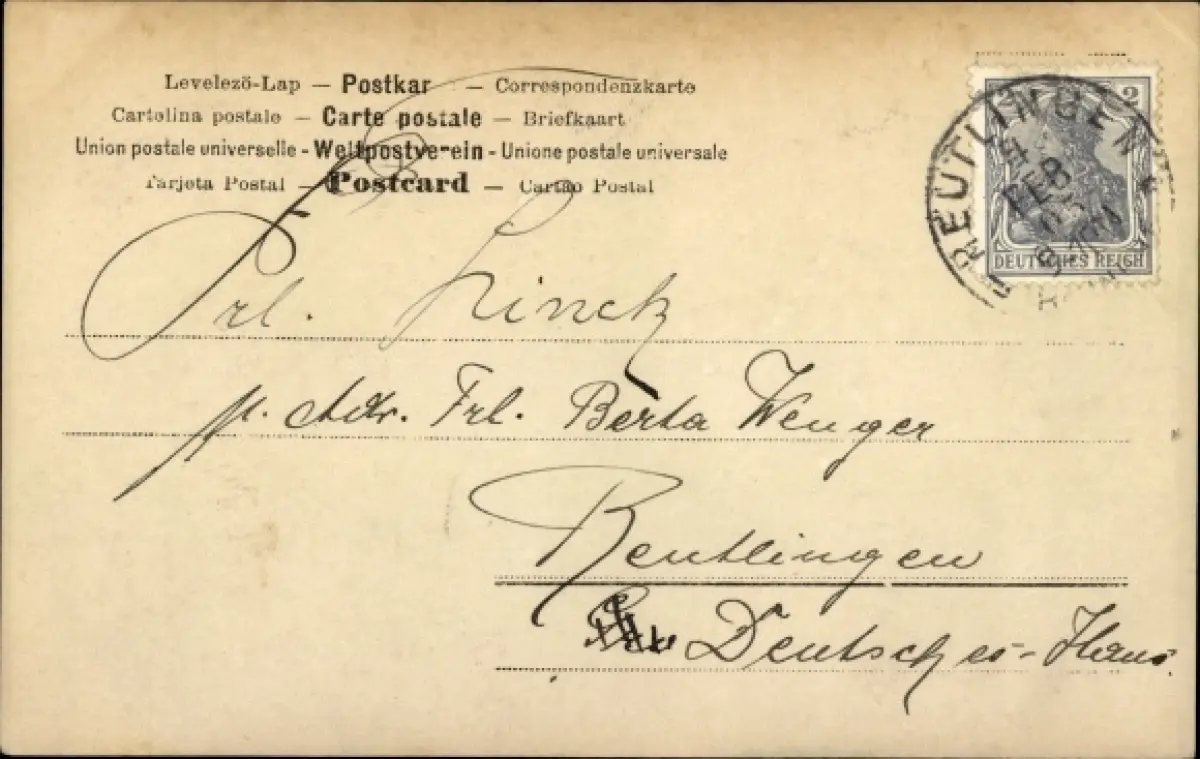 Levelezö-Lap — Postkar — Correspondenzkarte
Cartolina postale — Carte postale — Briefkaart
Union postale universelle - Weltpostverein - Unione postale universale
Tarjeta Postal — Postcard — Cartao Postal
2
REUTLINGEN
FEB
DEUTSCHES REICH
Frl. Linck
p. Adr. Frl. Berta Wenger
Reutlingen
Deutsches-Haus.